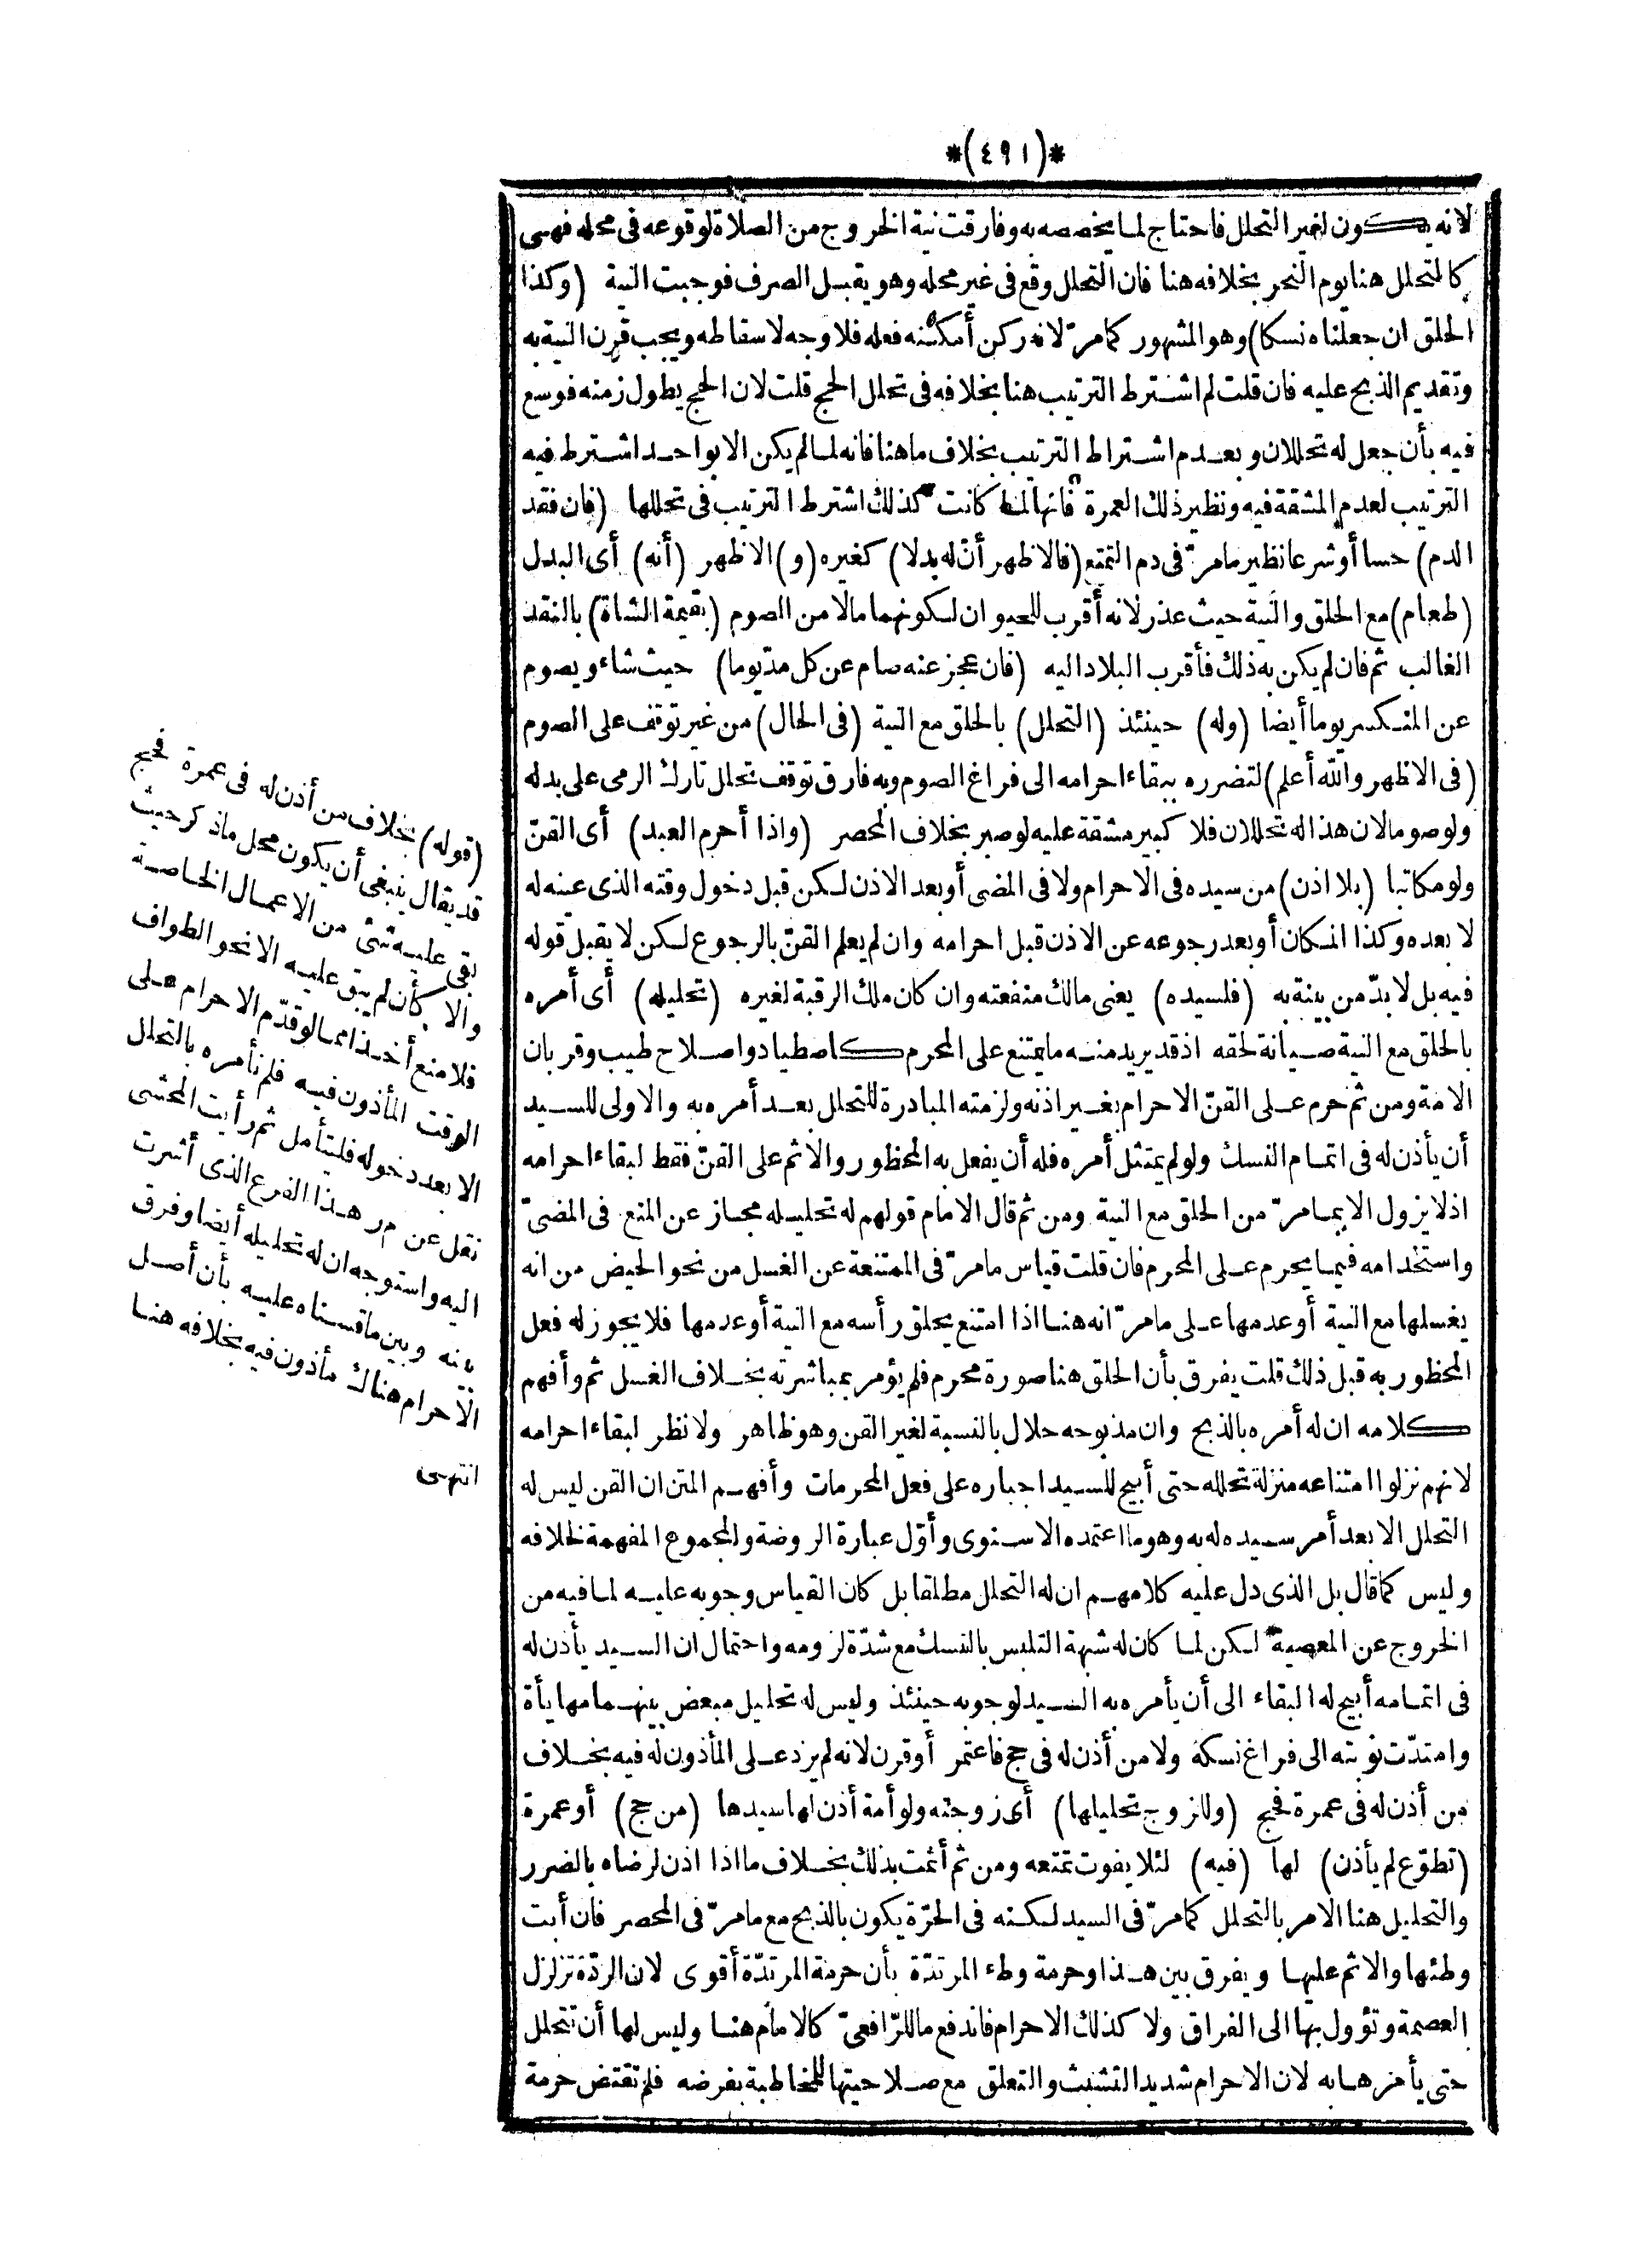 *(٤٩١)*
لانه يكون لغير التحلل فاحتاج لما يخصصه به وفارقت نية الخروج من الصلاة لوقوعه فى محله فهى
كالتحلل هنا يوم النحر بخلافه هنا فان التحلل وقع فى غير محله وهو يقبل الصرف فوجبت النية (وكذا
الحلق ان جعلناه نسكا) وهو المشهور كما مرّ لانه ركن أمكنه فعله فلا وجه لاسقاطه ويجب قرن النية به
وتقديم الذبح عليه فان قلت لم اشترط الترتيب هنا بخلافه فى تحلل الحج قلت لان الحج يطول زمنه فوسع
فيه بأن جعل له تحللان وبعدم اشتراط الترتيب بخلاف ما هنا فانه لما لم يكن الا بواحد اشترط فيه
الترتيب لعدم المشقة فيه ونظير ذلك العمرة فانها لما كانت كذلك اشترط الترتيب فى تحللها (فان فقد
الدم) حسا أو شرعا نظير ما مرّ فى دم التمتع (فالاظهر أنّ له بدلا) كغيره (و) الاظهر (أنه) أى البدل
(طعام) مع الحلق والنية حيث عذر لانه أقرب للحيوان لكونهما مالا من الصوم (بقيمة الشاة) بالنقد
الغالب ثم فان لم يكن به ذلك فأقرب البلاد اليه (فان عجز عنه صام عن كل مدّ يوما) حيث شاء ويصوم
عن المنكسر يوما أيضا (وله) حينئذ (التحلل) بالحلق مع النية (فى الحال) من غير توقف على الصوم
(فى الاظهر والله أعلم) لتضرره ببقاء احرامه الى فراغ الصوم وبه فارق توقف تحلل تارك الرمى على بدله
ولو صوما لان هذا له تحللان فلا كبير مشقة عليه لو صبر بخلاف المحصر (واذا أحرم العبد) أى القنّ
ولو مكاتبا (بلا اذن) من سيده فى الاحرام ولا فى المضى أو بعد الاذن لكن قبل دخول وقته الذى عينه له
لا بعده وكذا المكان أو بعد رجوعه عن الاذن قبل احرامه وان لم يعلم القنّ بالرجوع لكن لا يقبل قوله
فيه بل لا بدّ من بينة به (فلسيده) يعنى مالك منفعته وان كان ملك الرقبة لغيره (تحليله) أى أمره
بالحلق مع النية صيانة لحقه اذ قد يريد منه ما يمتنع على المحرم كاصطياد واصلاح طيب وقربان
الامة ومن ثم حرم على القنّ الاحرام بغير اذنه ولزمته المبادرة للتحلل بعد أمره به والاولى للسيد
أن يأذن له فى اتمام النسك ولو لم يمتثل أمره فله أن يفعل به المحظور والاثم على القنّ فقط لبقاء احرامه
اذ لا يزول الا بما مرّ من الحلق مع النية ومن ثم قال الامام قولهم له تحليله مجاز عن المنع فى المضىّ
واستخدامه فيما يحرم على المحرم فان قلت قياس ما مرّ فى الممتنعة عن الغسل من نحو الحيض من انه
يغسلها مع النية أو عدمها على ما مرّ انه هنا اذا امتنع يحلق رأسه مع النية أو عدمها فلا يجوز له فعل
المحظور به قبل ذلك قلت يفرق بأن الحلق هنا صورة محرم فلم يؤمر بمباشرته بخلاف الغسل ثم وأفهم
كلامه ان له أمره بالذبح وان مذبوحه حلال بالنسبة لغير القن وهو ظاهر ولا نظر لبقاء احرامه
لانهم نزلوا امتناعه منزلة تحلله حتى أبيح للسيد اجباره على فعل المحرمات وأفهم المتن ان القن ليس له
التحلل الا بعد أمر سيده له به وهو ما اعتمده الاسنوى وأوّل عبارة الروضة والمجموع المفهمة لخلافه
وليس كما قال بل الذى دل عليه كلامهم ان له التحلل مطلقا بل كان القياس وجوبه عليه لما فيه من
الخروج عن المعصية لكن لما كان له شبهة التلبس بالنسك مع شدّة لزومه واحتمال ان السيد يأذن له
فى اتمامه أبيح له البقاء الى أن يأمره به السيد لوجوبه حينئذ وليس له تحليل مبعض بينهما مهايأة
وامتدّت نوبته الى فراغ نسكه ولا من أذن له فى حج فاعتمر أو قرن لانه لم يزد على المأذون له فيه بخلاف
من أذن له فى عمرة فحج (وللزوج تحليلها) أى زوجته ولو أمة أذن لها سيدها (من حج) أو عمرة
(تطوّع لم يأذن) لها (فيه) لئلا يفوت تمتعه ومن ثم أثمت بذلك بخلاف ما اذا اذن لرضاه بالضرر
والتحليل هنا الامر بالتحلل كما مرّ فى السيد لكنه فى الحرّة يكون بالذبح مع ما مرّ فى المحصر فان أبت
وطئها والاثم عليها ويفرق بين هذا وحرمة وطء المرتدّة بأن حرمة المرتدّة أقوى لان الردّة تزلزل
العصمة وتؤول بها الى الفراق ولا كذلك الاحرام فاندفع ما للرّافعىّ كالامام هنا وليس لها أن تتحلل
حتى يأمرها به لان الاحرام شديد التشبث والتعلق مع صلاحيتها للمخاطبة بفرضه فلم تقتض حرمة
(قوله) بخلاف من أذن له فى عمرة فحج
قد يقال ينبغى أن يكون محل ما ذكر حيث
بقى عليه شئ من الاعمال الخاصة
والا كأن لم يبق عليه الا نحو الطواف
فلا منع أخذا مما لو قدّم الاحرام على
الوقت المأذون فيه فلم نأمره بالتحلل
الا بعد دخوله فليتأمل ثم رأيت المحشى
نقل عن م ر هذا الفرع الذى أشرت
اليه واستوجه ان له تحليله أيضا وفرق
بينه وبين ما قسناه عليه بأن أصل
الاحرام هناك مأذون فيه بخلافه هنا
انتهى